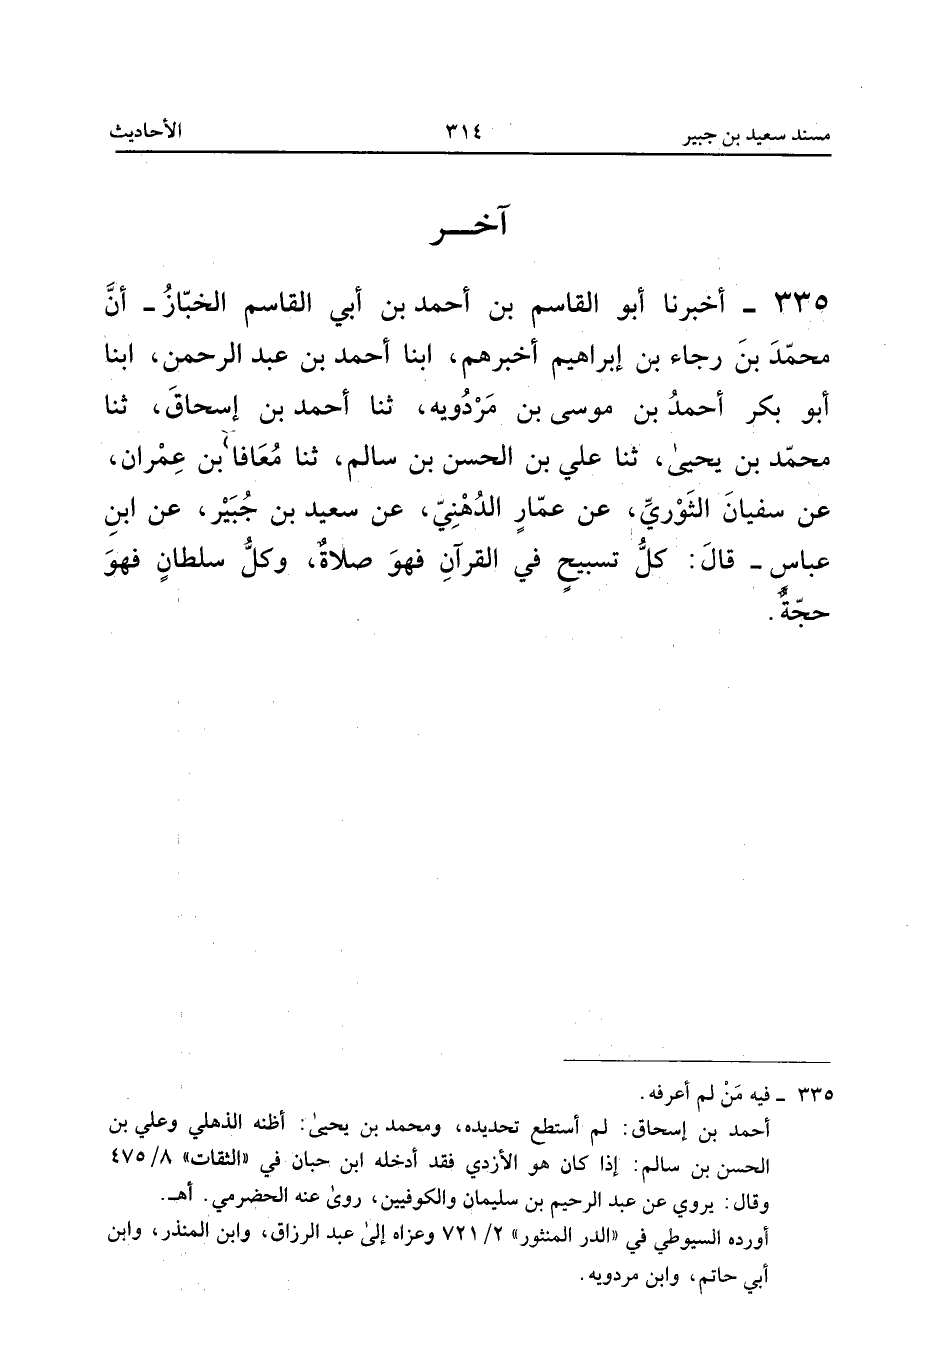 مسند سعيد بن جبير ٣١٤ الأحاديث
آخـــر
٣٣٥ ـ أخبرنا أبو القاسم بن أحمد بن أبي القاسم الخبّازُ ـ أنَّ
محمّدَ بنَ رجاء بن إبراهيم أخبرهم، ابنا أحمد بن عبد الرحمن، ابنا
أبو بكر أحمدُ بن موسى بن مَرْدُويه، ثنا أحمد بن إسحاقَ، ثنا
محمّد بن يحيىٰ، ثنا علي بن الحسن بن سالم، ثنا مُعَافا بن عِمْران،
عن سفيانَ الثَوْريِّ، عن عمّارٍ الدُهْنِيّ، عن سعيد بن جُبَيْر، عن ابنِ
عباس ـ قالَ: كلُّ تسبيحٍ في القرآنِ فهوَ صلاةٌ، وكلُّ سلطانٍ فهوَ
حجّةٌ.
٣٣٥ ـ فيه مَنْ لم أعرفه.
أحمد بن إسحاق: لم أستطع تحديده، ومحمد بن يحيىٰ: أظنه الذهلي وعلي بن
الحسن بن سالم: إذا كان هو الأزدي فقد أدخله ابن حبان في «الثقات» ٨/ ٤٧٥
وقال: يروي عن عبد الرحيم بن سليمان والكوفيين، روىٰ عنه الحضرمي. أهـ.
أورده السيوطي في «الدر المنثور» ٢/ ٧٢١ وعزاه إلىٰ عبد الرزاق، وابن المنذر، وابن
أبي حاتم، وابن مردويه.